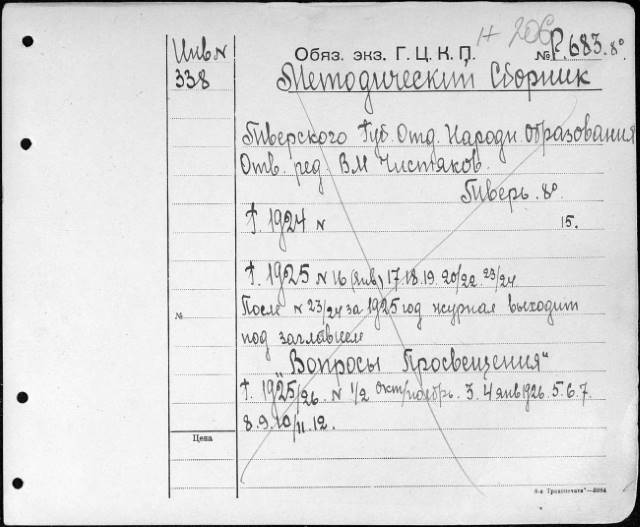 Н 206
Инв N
338
Обяз. экз. Г. Ц. К. П.
№ Р.683. 8°
Методический Сборник
Тверского Губ. Отд. Народн. Образования
Отв. ред. В М Чистяков.
Тверь. 8°
† 1924 N 15.
† 1925 N 16 (янв) 17. 18. 19. 20/22. 23/24
После N 23/24 за 1925 год журнал выходит
№
под заглавием
„Вопросы Просвещения"
† 1925/26. N 1/2 окт/ноябрь. 3. 4 янв 1926. 5. 6. 7.
8. 9. 10/11. 12.
Цена